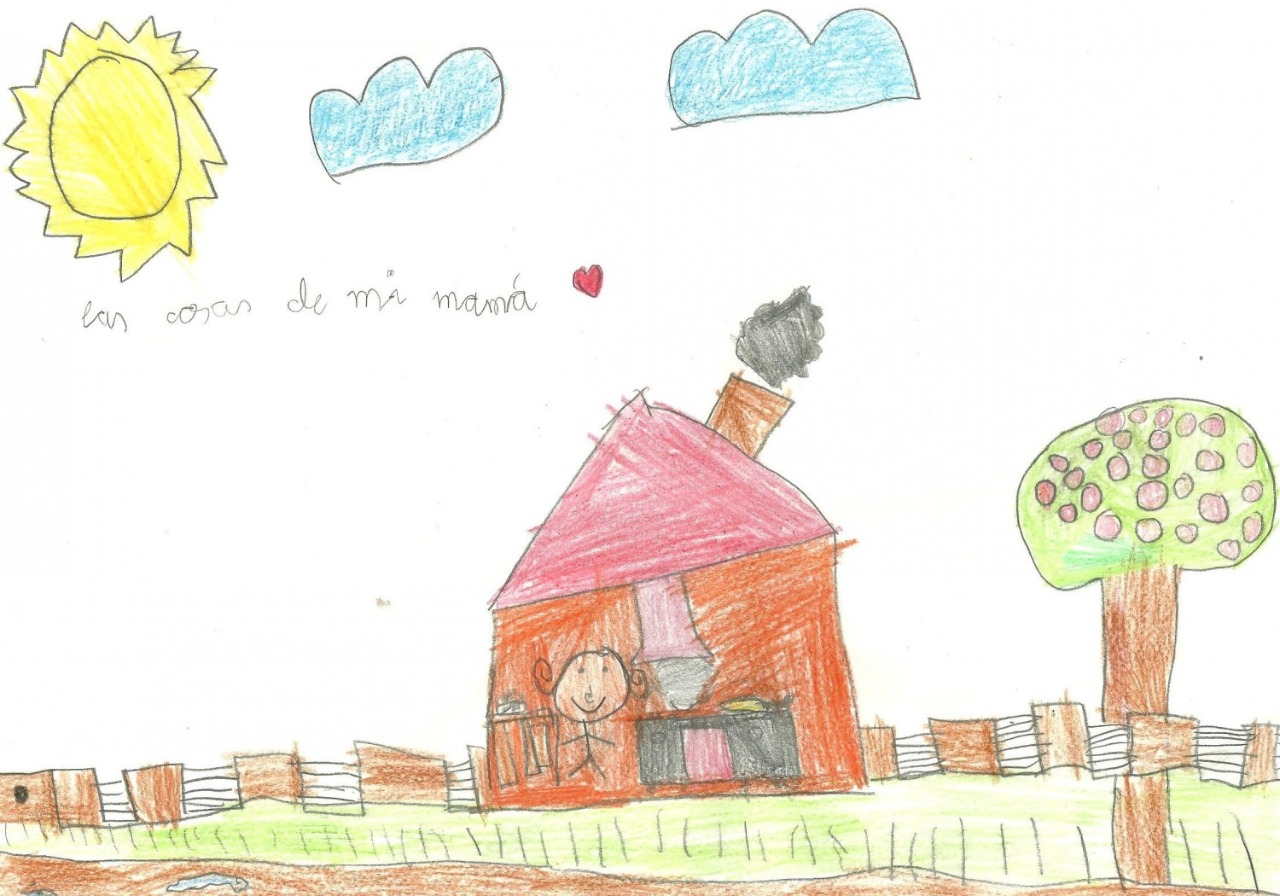 las cosas de mi mamá